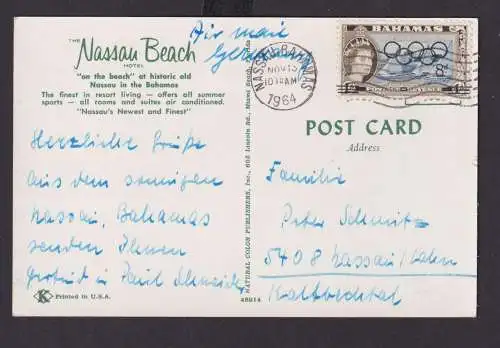 THE
Nassau Beach
HOTEL
"on the beach" at historic old
Nassau in the Bahamas
The finest in resort living — offers all summer
sports — all rooms and suites air conditioned.
"Nassau's Newest and Finest"
Air mail
Germany
Herzliche Grüße
aus dem sonnigen
Nassau, Bahamas
senden Ihnen
Paul Schneider
K
Printed in U.S.A.
48014
NATURAL COLOR PUBLISHERS, Inc., 605 Lincoln Rd., Miami Beach, Florida
NASSAU BAHAMAS
NOV 13
AM
1964
BAHAMAS
8d
POST CARD
Address
Familie
Peter Schmitz
5408 Nassau/Lahn
Kaltbachtal